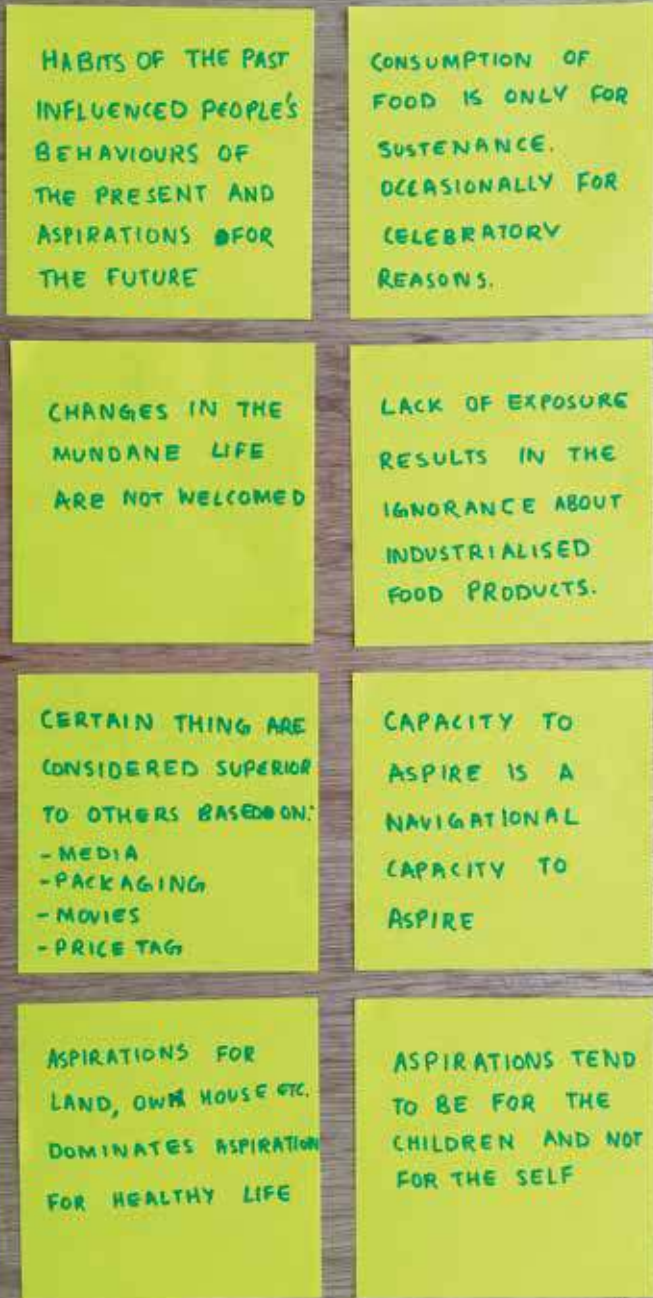 HABITS OF THE PAST
INFLUENCED PEOPLE'S
BEHAVIOURS OF
THE PRESENT AND
ASPIRATIONS FOR
THE FUTURE
CONSUMPTION OF
FOOD IS ONLY FOR
SUSTENANCE.
OCCASIONALLY FOR
CELEBRATORY
REASONS.
CHANGES IN THE
MUNDANE LIFE
ARE NOT WELCOMED
LACK OF EXPOSURE
RESULTS IN THE
IGNORANCE ABOUT
INDUSTRIALISED
FOOD PRODUCTS.
CERTAIN THING ARE
CONSIDERED SUPERIOR
TO OTHERS BASED ON:
- MEDIA
- PACKAGING
- MOVIES
- PRICE TAG
CAPACITY TO
ASPIRE IS A
NAVIGATIONAL
CAPACITY TO
ASPIRE
ASPIRATIONS FOR
LAND, OWN HOUSE ETC.
DOMINATES ASPIRATION
FOR HEALTHY LIFE
ASPIRATIONS TEND
TO BE FOR THE
CHILDREN AND NOT
FOR THE SELF